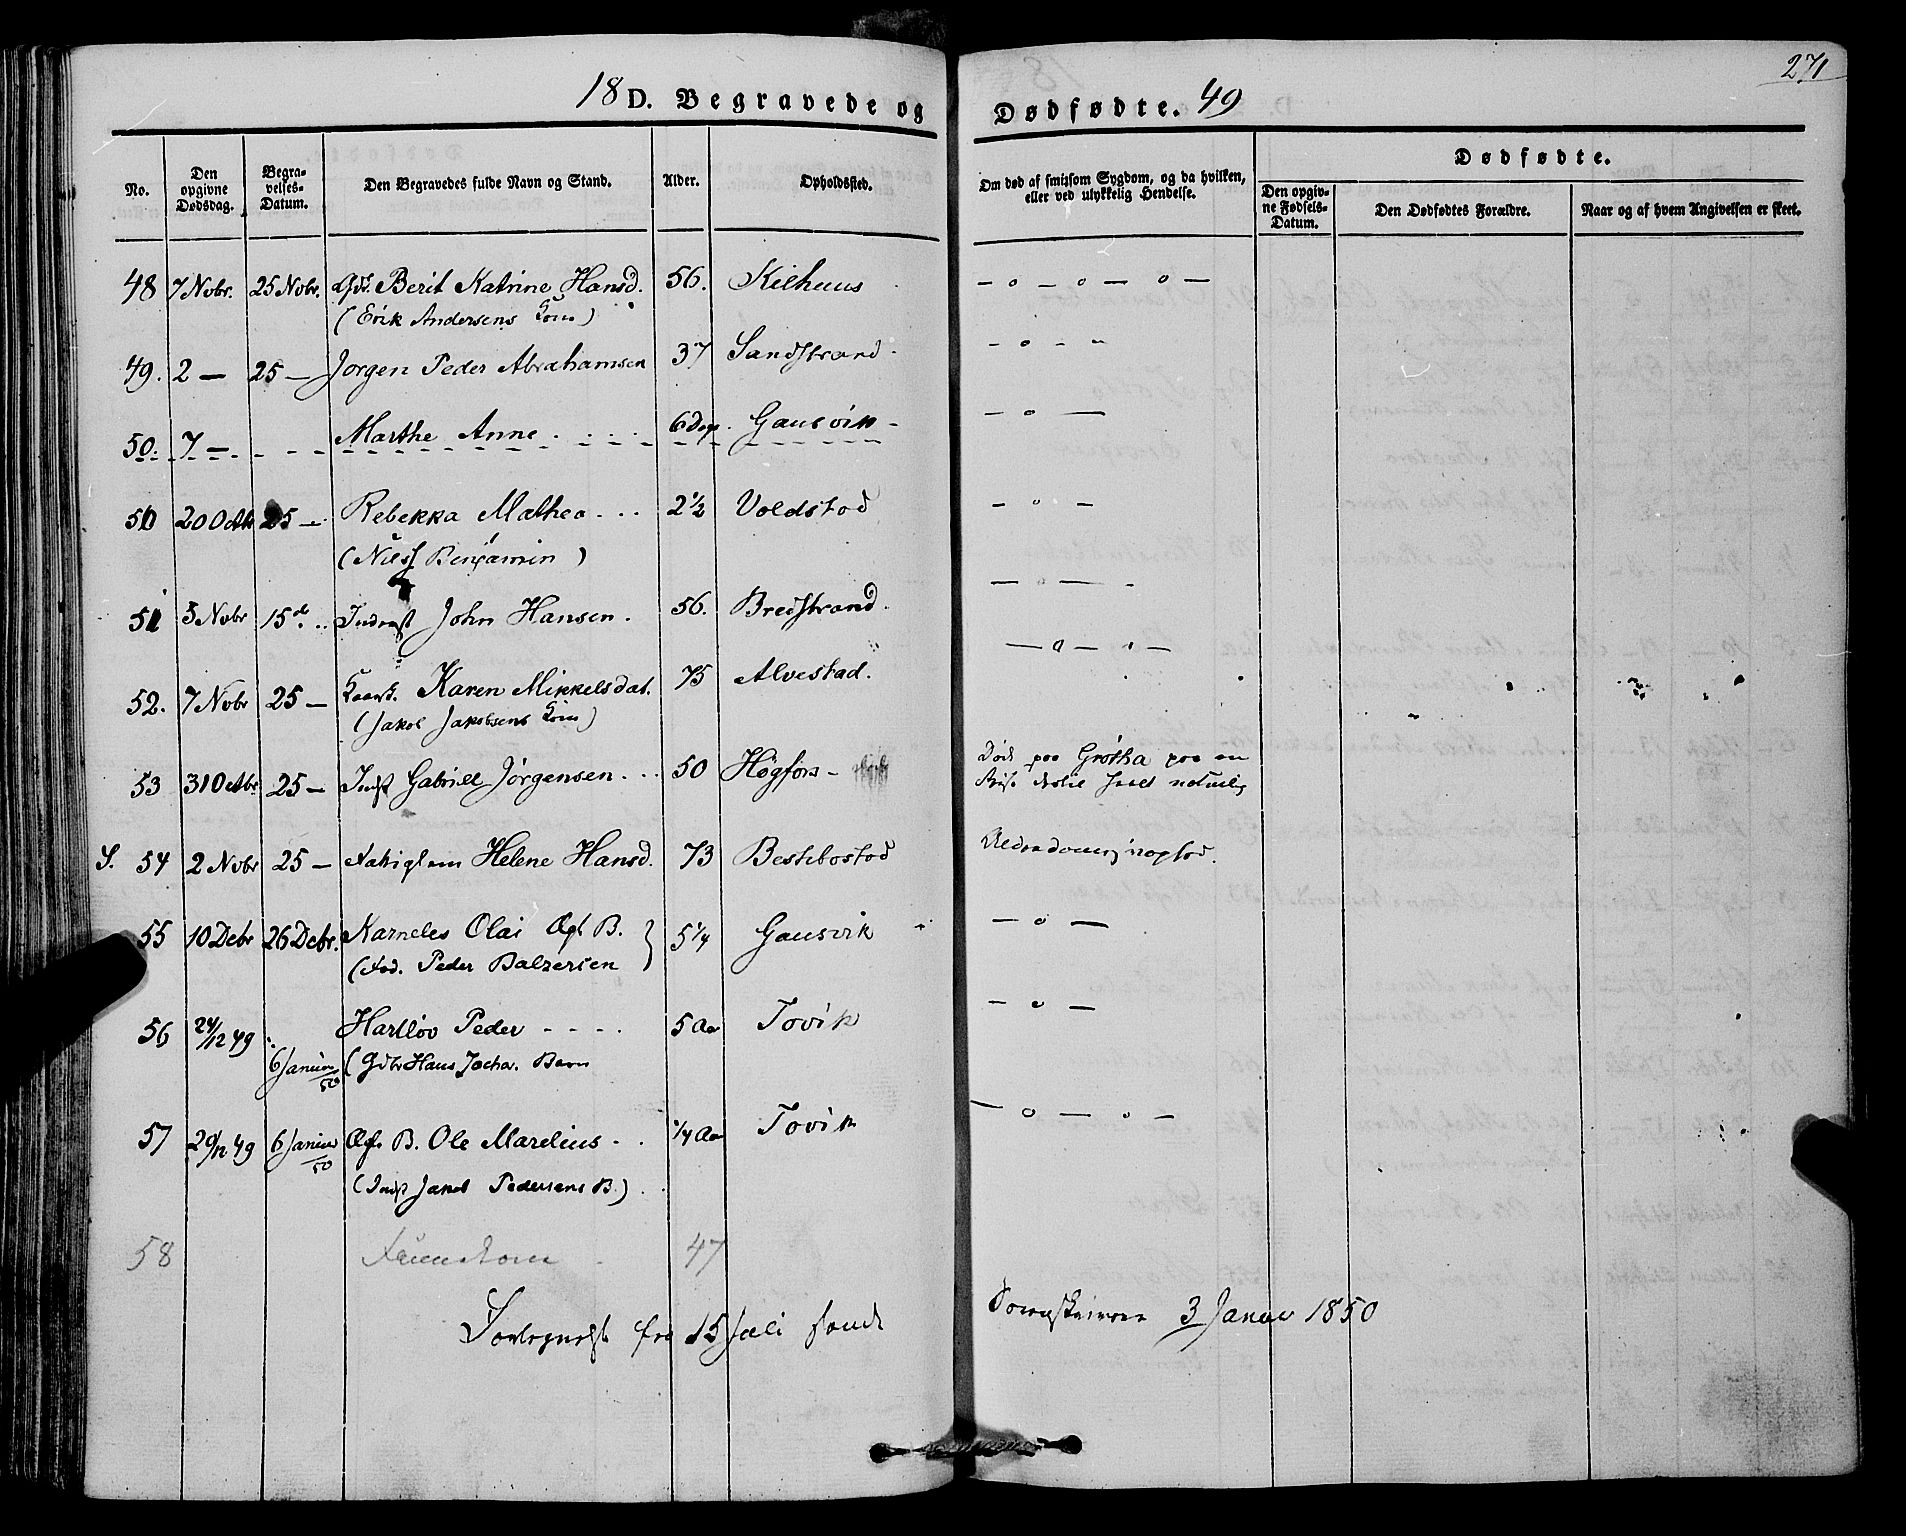 271
18 D. Begravede og Dødfødte. 49
No.
Den opgivne Dødsdag.
Begravelses-Datum.
Den Begravedes fulde Navn og Stand.
Alder.
Opholdssted.
Om død af smitsom Sygdom, og da hvilken, eller ved ulykkelig Hendelse.
Dødfødte.
Den opgivne Fødsels-Datum.
Den Dødfødtes Forældre.
Naar og af hvem Angivelsen er skeet.
48 7 Nobr. 25 Nobr. Berit Katrine Hansd. 56. Kilhuus — o — o — o —
(Erik Andersens Kone)
49. 2 — 25 — Jørgen Peder Abrahamsen 37 Sandstrand — o — "
50. 7 — Marthe Anne 6 Dage Gausvik — o —
50 20 Octb 25 — Rebekka Mathea 2 1/2 Voldstad — o —
(Niels Benjamin)
51 3 Nobr 15 d. Inderst John Hansen. 56. Bredstrand. — o — —
52. 7 Nobr 25 — Karen Mikkelsdat. 75 Alvestad. — o — o —
(Jakob Jakobsens Kone)
53 31 Octbr 25 — Indst Gabriel Jørgensen 50 Høgfors — Død paa Grøtha paa en
Reise
S. 54 2 Nobr 25 — Fatiglem Helene Hansd. 73 Bestebostad Alderdoms
55 10 Debr 26 Debr. Karneles Olai Ægt B. 5 1/4 Gausvik — o —
(Fad. Peder Balzersen
56 24/12 49 6 Januar/50 Hartløv Peder 5 Aar Tovik — o —
(Gdbr Hans Jocha. Barn
57 29/12 49 6 Januar/50 Ægt B. Ole Marelius 1/4 Aar Tovik — o — o —
(Indst Jakob Pedersens B.)
58 47
fra 15 Juli
3 Januar 1850